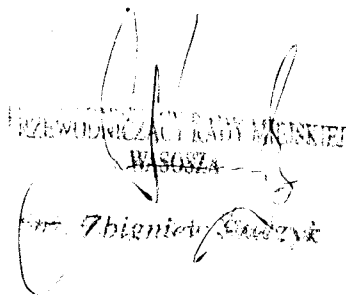 PRZEWODNICZĄCY RADY MIEJSKIEJ
WĄSOSZA
Zbigniew